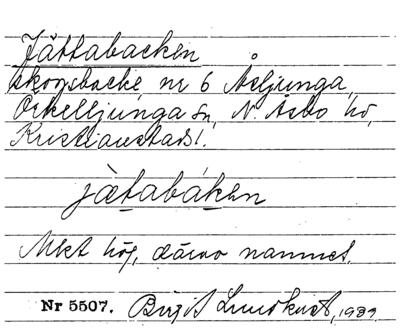 Jättabacken
skogsbacke nr 6 Åsljunga,
Örkelljunga sn, N. Åsbo hd,
Kristianstads l.
jàtabáken
Mkt hög, därav namnet.
Nr 5507. Birgit Lundkvist, 1933.